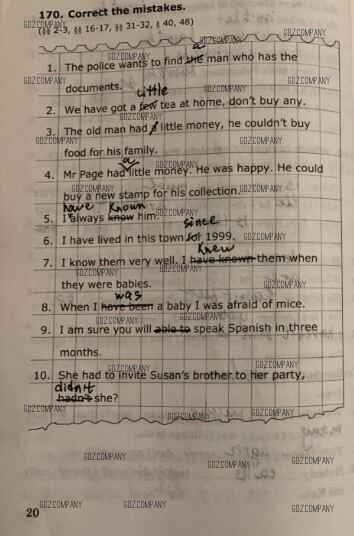 170. Correct the mistakes.
(§§ 2-3, §§ 16-17, §§ 31-32, § 40, 48)
a
1. The police wants to find the man who has the
documents.
little
2. We have got a few tea at home, don't buy any.
3. The old man had a little money, he couldn't buy
food for his family.
a
4. Mr Page had little money. He was happy. He could
buy a new stamp for his collection.
have known
5. I always know him.
since
6. I have lived in this town for 1999.
knew
7. I know them very well. I have known them when
they were babies.
was
8. When I have been a baby I was afraid of mice.
9. I am sure you will able to speak Spanish in three
months.
10. She had to invite Susan's brother to her party,
didn't
hadn't she?
20
GDZ.COMPANY